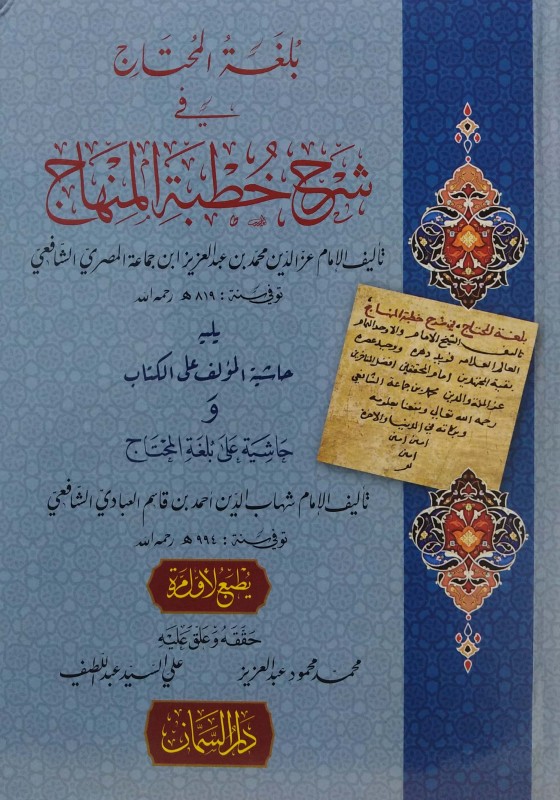 بُلغَةُ المُحتَاجِ
في
شَرْحِ خُطْبَةِ المِنْهَاجِ
تأليف الإمام عز الدين محمد بن عبد العزيز ابن جماعة المصري الشافعي
توفي سنة : ٨١٩ هـ رحمه الله
يليه
حاشية المؤلف على الكتاب
و
حَاشِيَة عَلَى بُلغَةِ المُحْتَاج
تأليف الإمام شهاب الدين أحمد بن قاسم العبادي الشافعي
توفي سنة : ٩٩٤ هـ رحمه الله
يُطبَع لأوّل مَرة
حَقّقَهُ وَعَلّقَ عَلَيْهِ
محمد محمود عبد العزيز علي السيد عبد اللطيف
دَارُ السَّمَّان
بلغة المحتاج، في شرح خطبة المنهاج،
تاليف الشيخ الامام والاوحد الهمام
العالم العلامه فريد دهره ووحيد عصره
بقية المجتهدين امام المحققين افضل المتاخرين
عز الملة والدين محمد بن جماعة الشافعي
رحمه الله تعالى ونفعنا بعلومه
وبركاته في الدنيا والاخرة
امين امين
امين